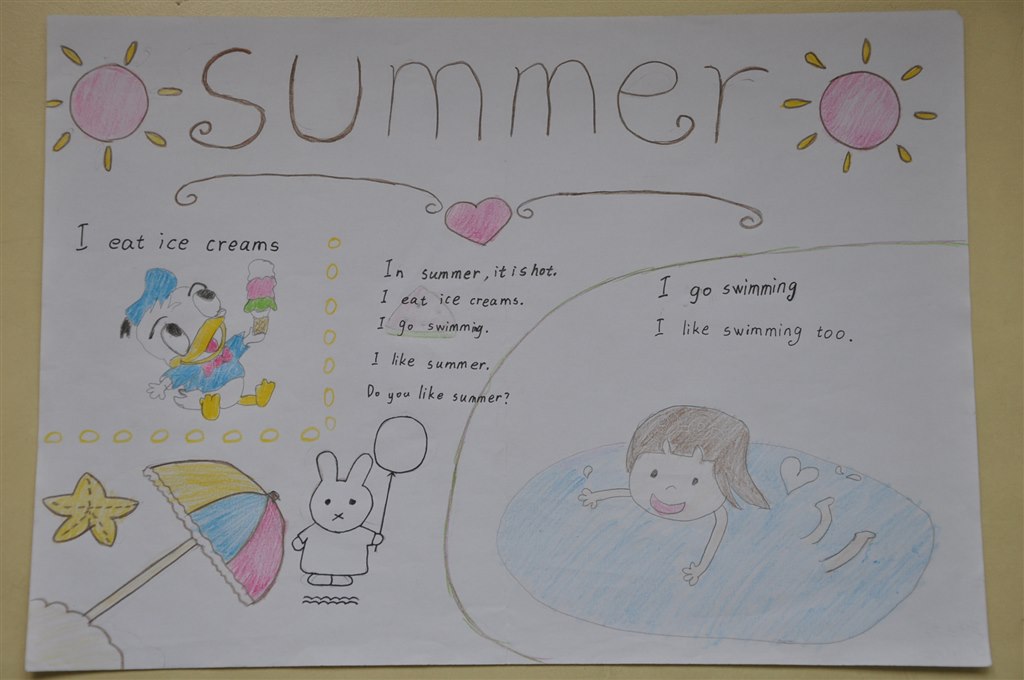 Summer
I eat ice creams
In summer, it is hot.
I eat ice creams.
I go swimming.
I like summer.
Do you like summer?
I go swimming
I like swimming too.